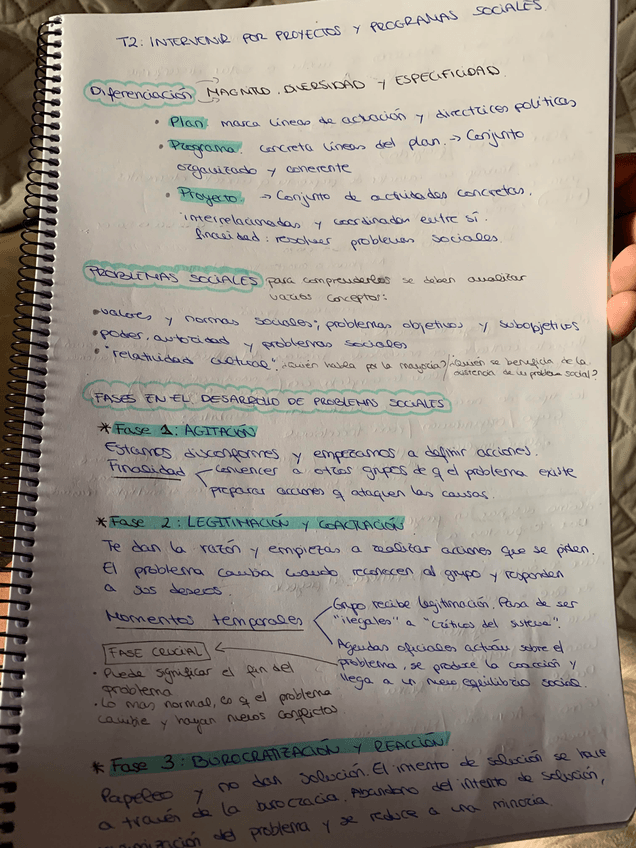 T2: INTERVENIR POR PROYECTOS Y PROGRAMAS SOCIALES
Diferenciación → MAGNITUD, DIVERSIDAD Y ESPECIFICIDAD.
• Plan: marca líneas de actuación y directrices políticas
• Programa: concreta líneas del plan. → Conjunto
organizado y coherente
• Proyecto. → Conjunto de actividades concretas,
interrelacionadas y coordinadas entre sí.
finalidad: resolver problemas sociales
PROBLEMAS SOCIALES para comprenderlos se deben analizar
varios conceptos:
• valores y normas sociales; problemas objetivos y subjetivos
• poder, autoridad y problemas sociales
• "relatividad cultural": ¿Quién habla por la mayoría? ¿Quién se beneficia de la
existencia de un problema social?
FASES EN EL DESARROLLO DE PROBLEMAS SOCIALES
* Fase 1: AGITACIÓN
Estamos disconformes y empezamos a definir acciones.
Finalidad convencer a otros grupos de q el problema existe
preparar acciones q ataquen las causas.
* Fase 2: LEGITIMACIÓN Y COACTUACIÓN
Te dan la razón y empiezas a realizar acciones que se piden.
El problema cambia cuando reconocen al grupo y responden
a sus deseos.
Momentos temporales
Grupo recibe legitimación. Pasa de ser
"ilegales" a "críticos del sistema".
Agendas oficiales actúan sobre el
problema, se produce la coacción y
llega a un nuevo equilibrio social.
FASE CRUCIAL
• Puede significar el fin del
problema
• Lo mas normal, es q el problema
cambie y hayan nuevos conflictos.
* Fase 3: BUROCRATIZACIÓN Y REACCIÓN
Papeleo y no dan solución. El intento de solución se hace
a través de la burocracia. Abandono del intento de solución,
del problema y se reduce a una minoría.